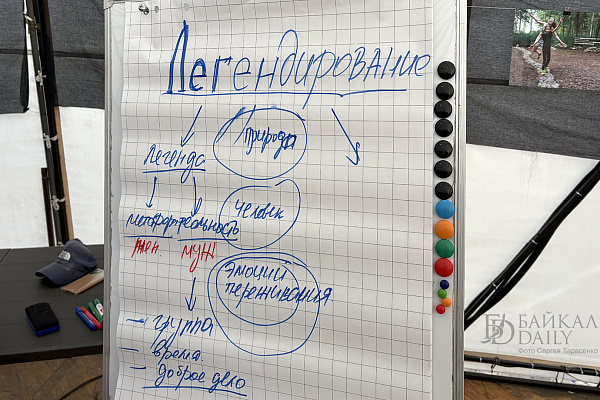 Легендирование
природа
Легенда
человек
метафорательность
жен. муж
эмоции
переживания
группа
время
доброе дело
БАЙКАЛ
DAILY
Фото Сергея Тарасенко